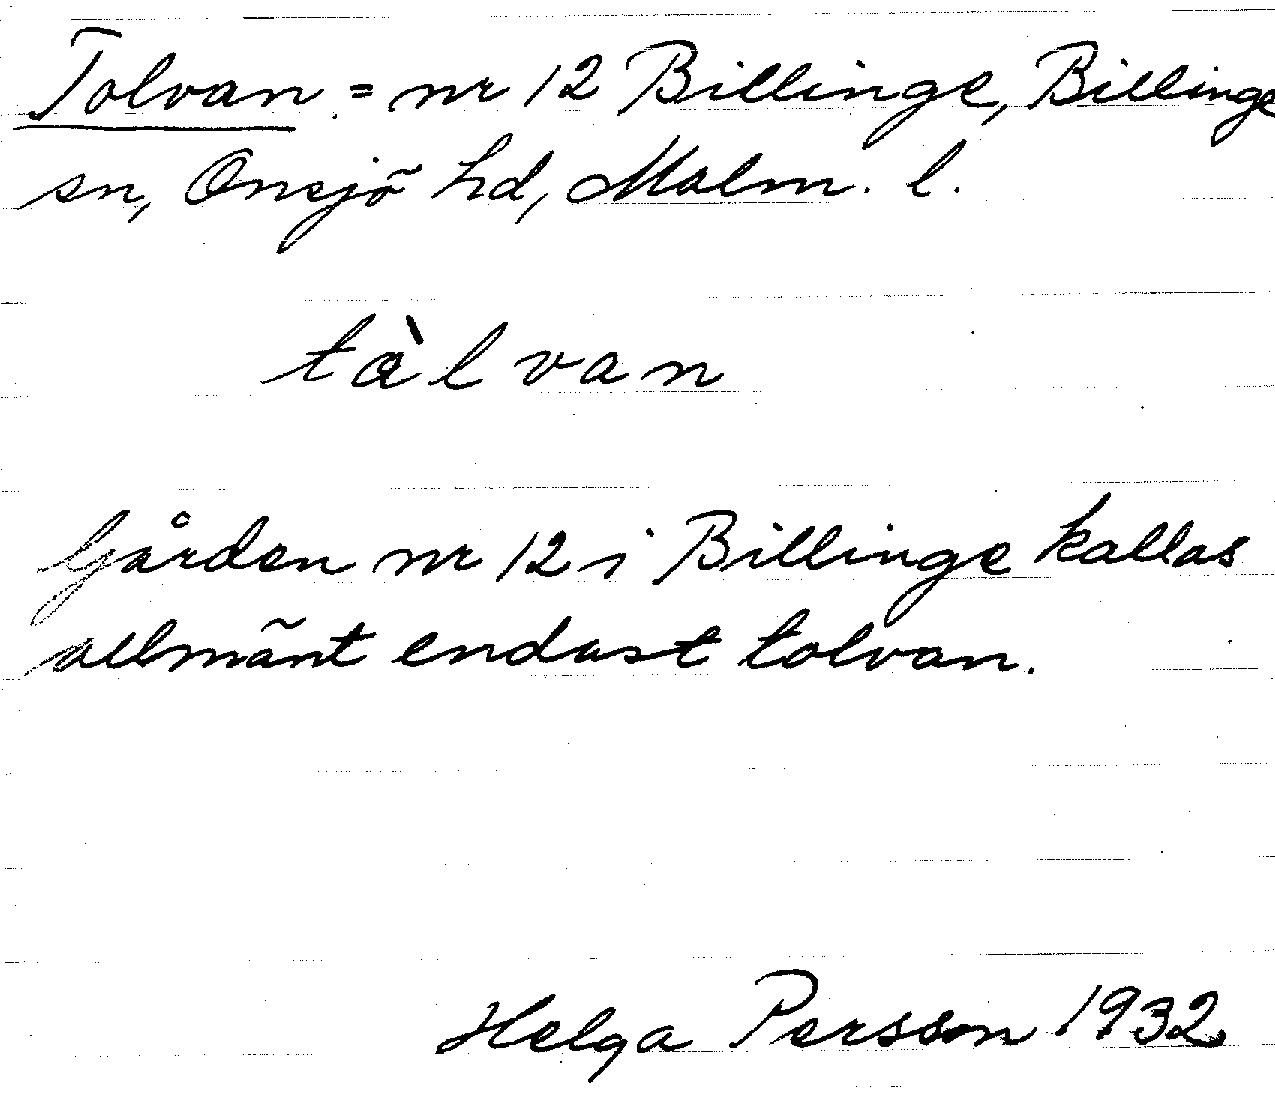 Tolvan = nr 12 Billinge, Billinge
sn, Onsjö hd, Malm. l.
tàlvan
Gården nr 12 i Billinge kallas
allmänt endast tolvan.
Helga Persson 1932